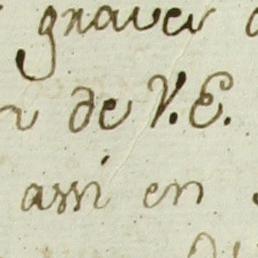 graver
de V.E.
assi en